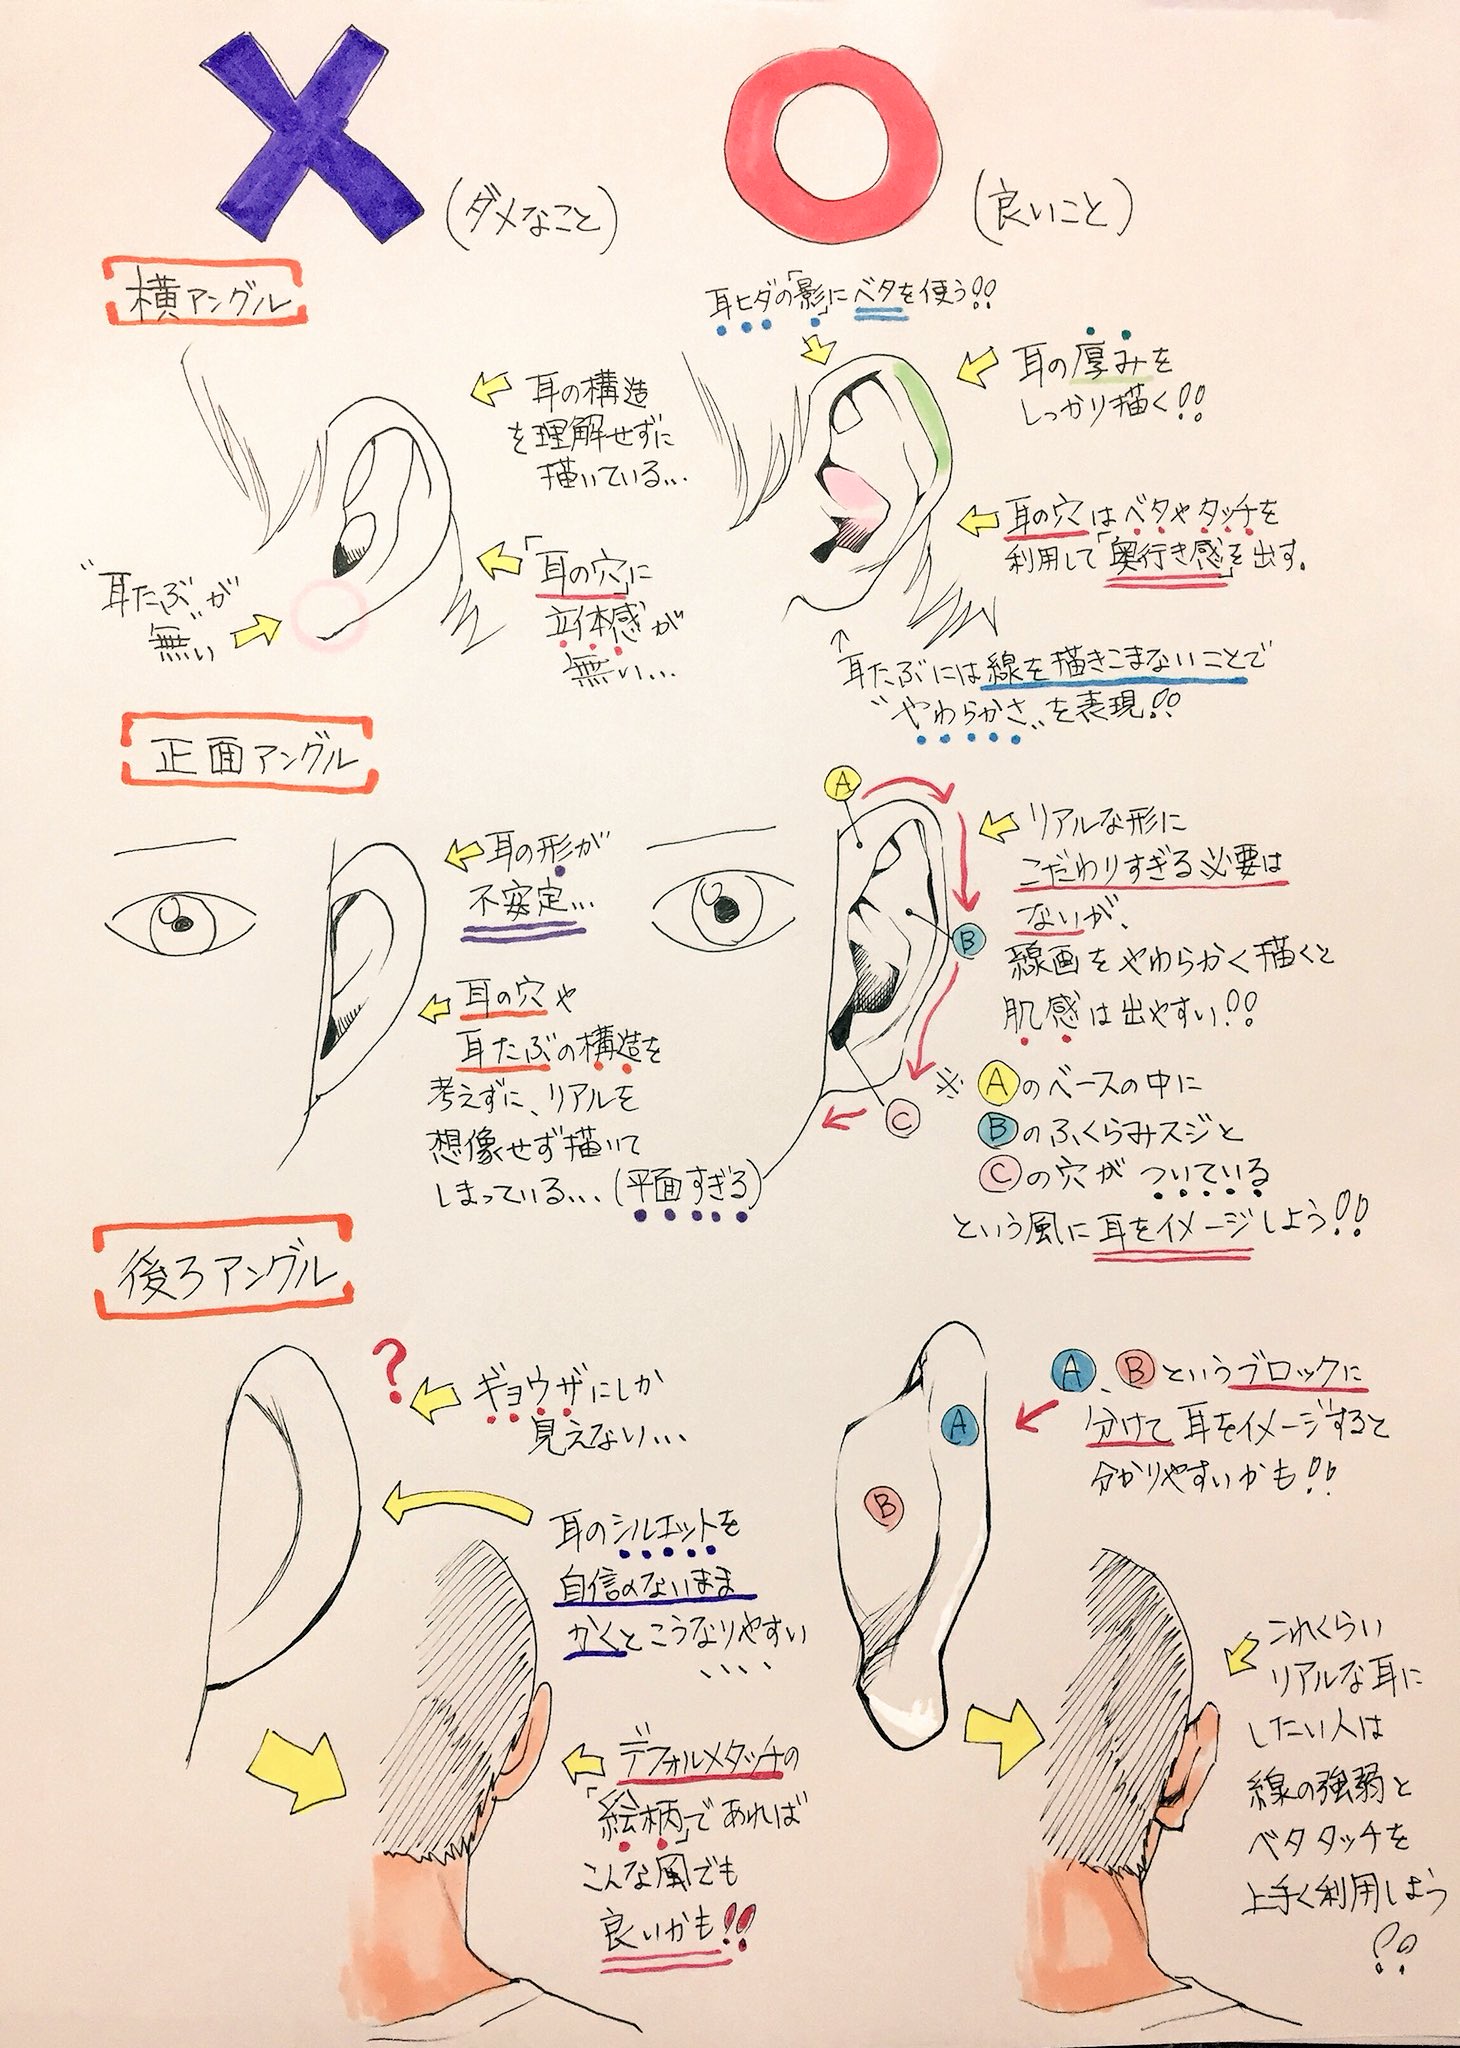 (ダメなこと)
(良いこと)
横アングル
耳の構造
を理解せずに
描いている...
「耳の穴」に
立体感が
無い...
"耳たぶ"が
無い
耳ヒダの「影」にベタを使う!!
耳の厚みを
しっかり描く!!
耳の穴はベタやタッチを
利用して「奥行き感」を出す。
耳たぶには線を描きこまないことで
"やわらかさ"を表現!!
正面アングル
耳の形が
不安定...
耳の穴や
耳たぶの構造を
考えずに、リアルを
想像せず描いて
しまっている...(平面すぎる)
A
B
C
リアルな形に
こだわりすぎる必要は
ないが、
線画をやわらかく描くと
肌感は出やすい!!
※Aのベースの中に
Bのふくらみスジと
Cの穴がついている
という風に耳をイメージしよう!!
後ろアングル
?
ギョウザにしか
見えない...
耳のシルエットを
自信のないまま
かくとこうなりやすい
、、、、
デフォルメタッチの
「絵柄」であれば
こんな風でも
良いかも!!
A
B
A、Bというブロックに
分けて耳をイメージすると
分かりやすいかも!!
これくらい
リアルな耳に
したい人は
線の強弱と
ベタタッチを
上手く利用しよう
!!